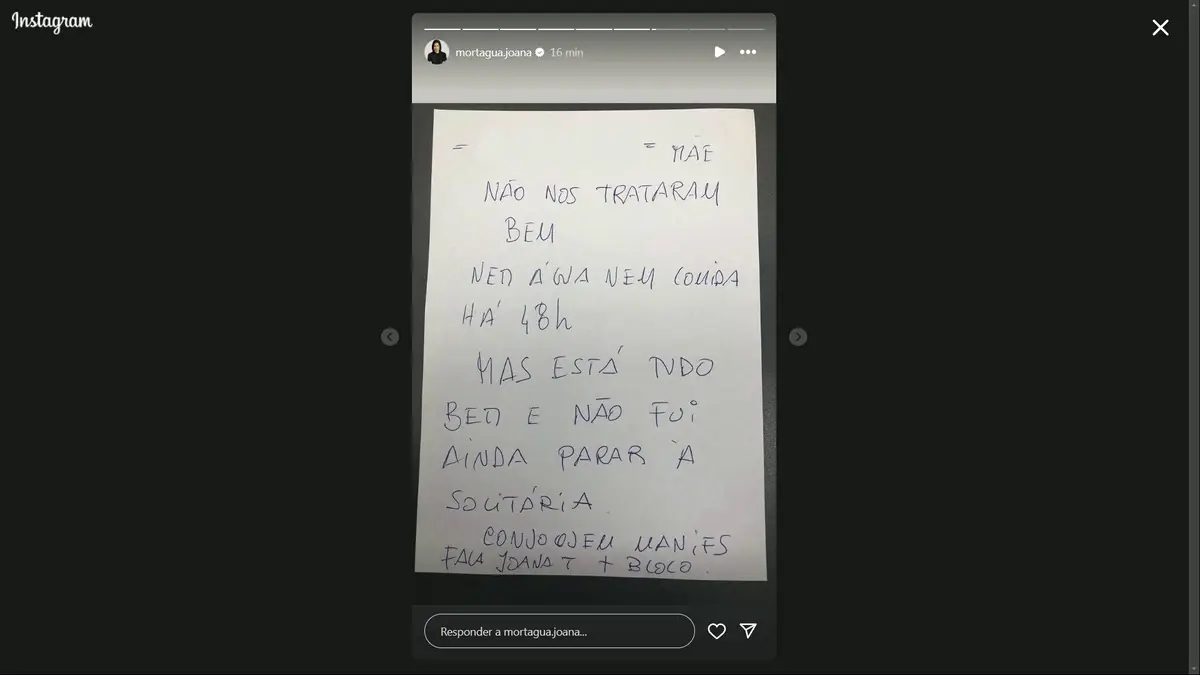 Instagram
mortagua.joana 16 min
= = MÃE
NÃO NOS TRATARAM
BEM
NEM ÁGUA NEM COMIDA
HÁ 48h
MAS ESTÁ TUDO
BEM E NÃO FUI
AINDA PARAR À
SOLITÁRIA.
CONVOQUEM MANIFS
FALA JOANA T + BLOCO.
Responder a mortagua.joana...